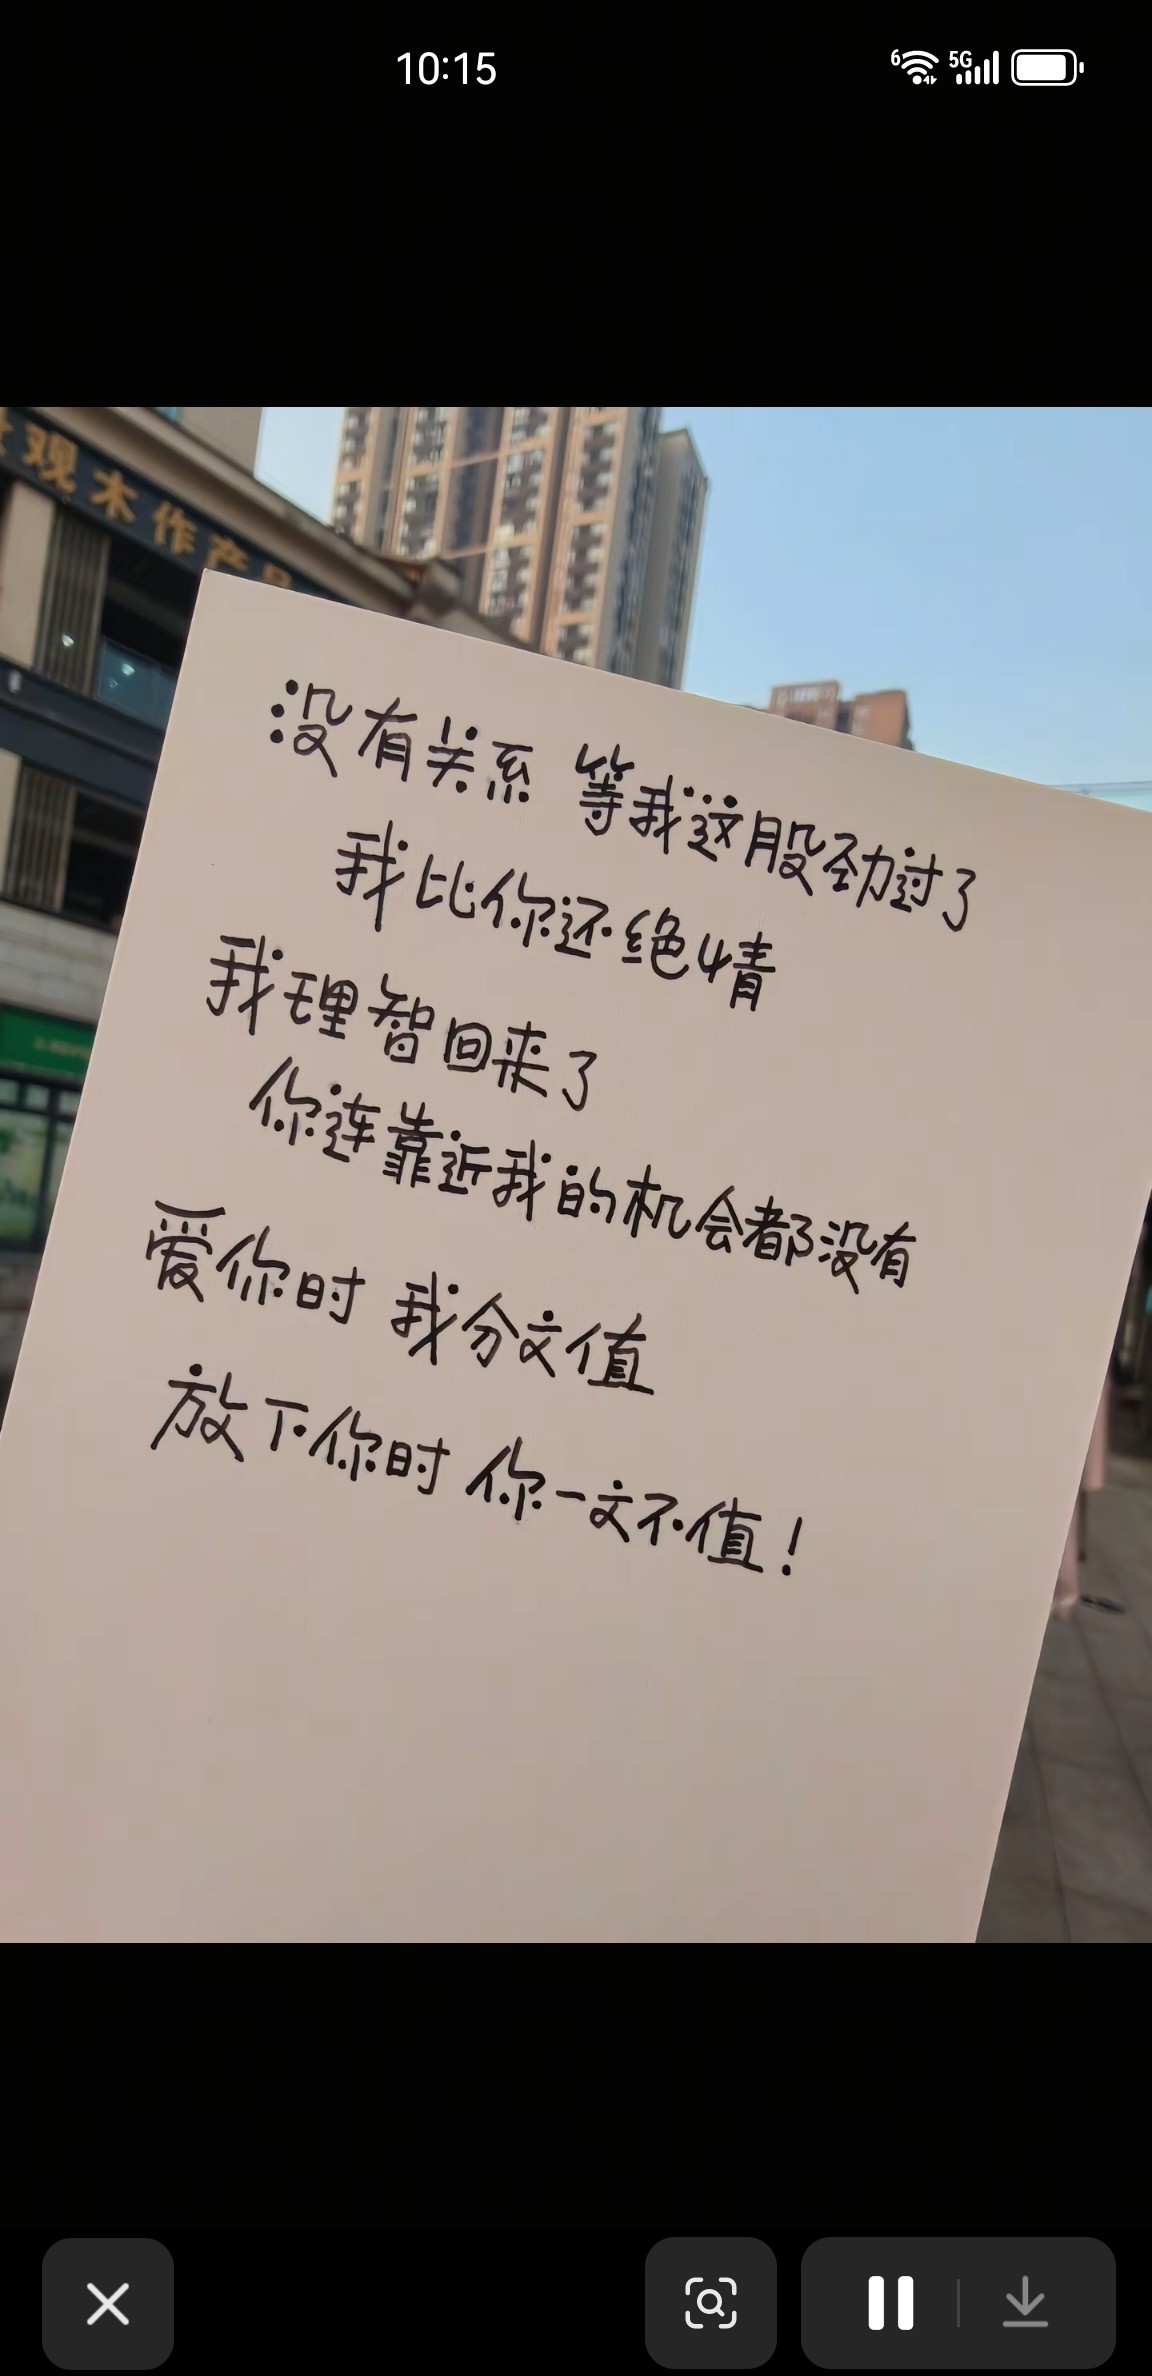 10:15
6
5G
观木作产品
没有关系 等我这股劲过了
我比你还绝情
我理智回来了
你连靠近我的机会都没有
爱你时 我分文值
放下你时 你一文不值!